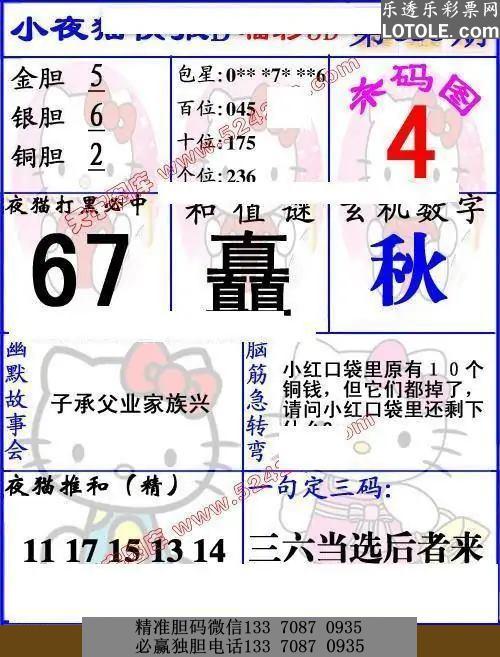 乐透乐彩票网
LOTOLE.COM
小夜猫
金胆 5
银胆 6
铜胆 2
包星:0** *7* **6
百位:045
十位:175
个位:236
杀码图
4
夜猫打黑必中
67
和值谜
玄机数字
秋
幽默故事会
子承父业家族兴
脑筋急转弯
小红口袋里原有10个
铜钱,但它们都掉了,
请问小红口袋里还剩下
夜猫推和(精)
11 17 15 13 14
一句定三码:
三六当选后者来
精准胆码微信133 7087 0935
必赢独胆电话133 7087 0935